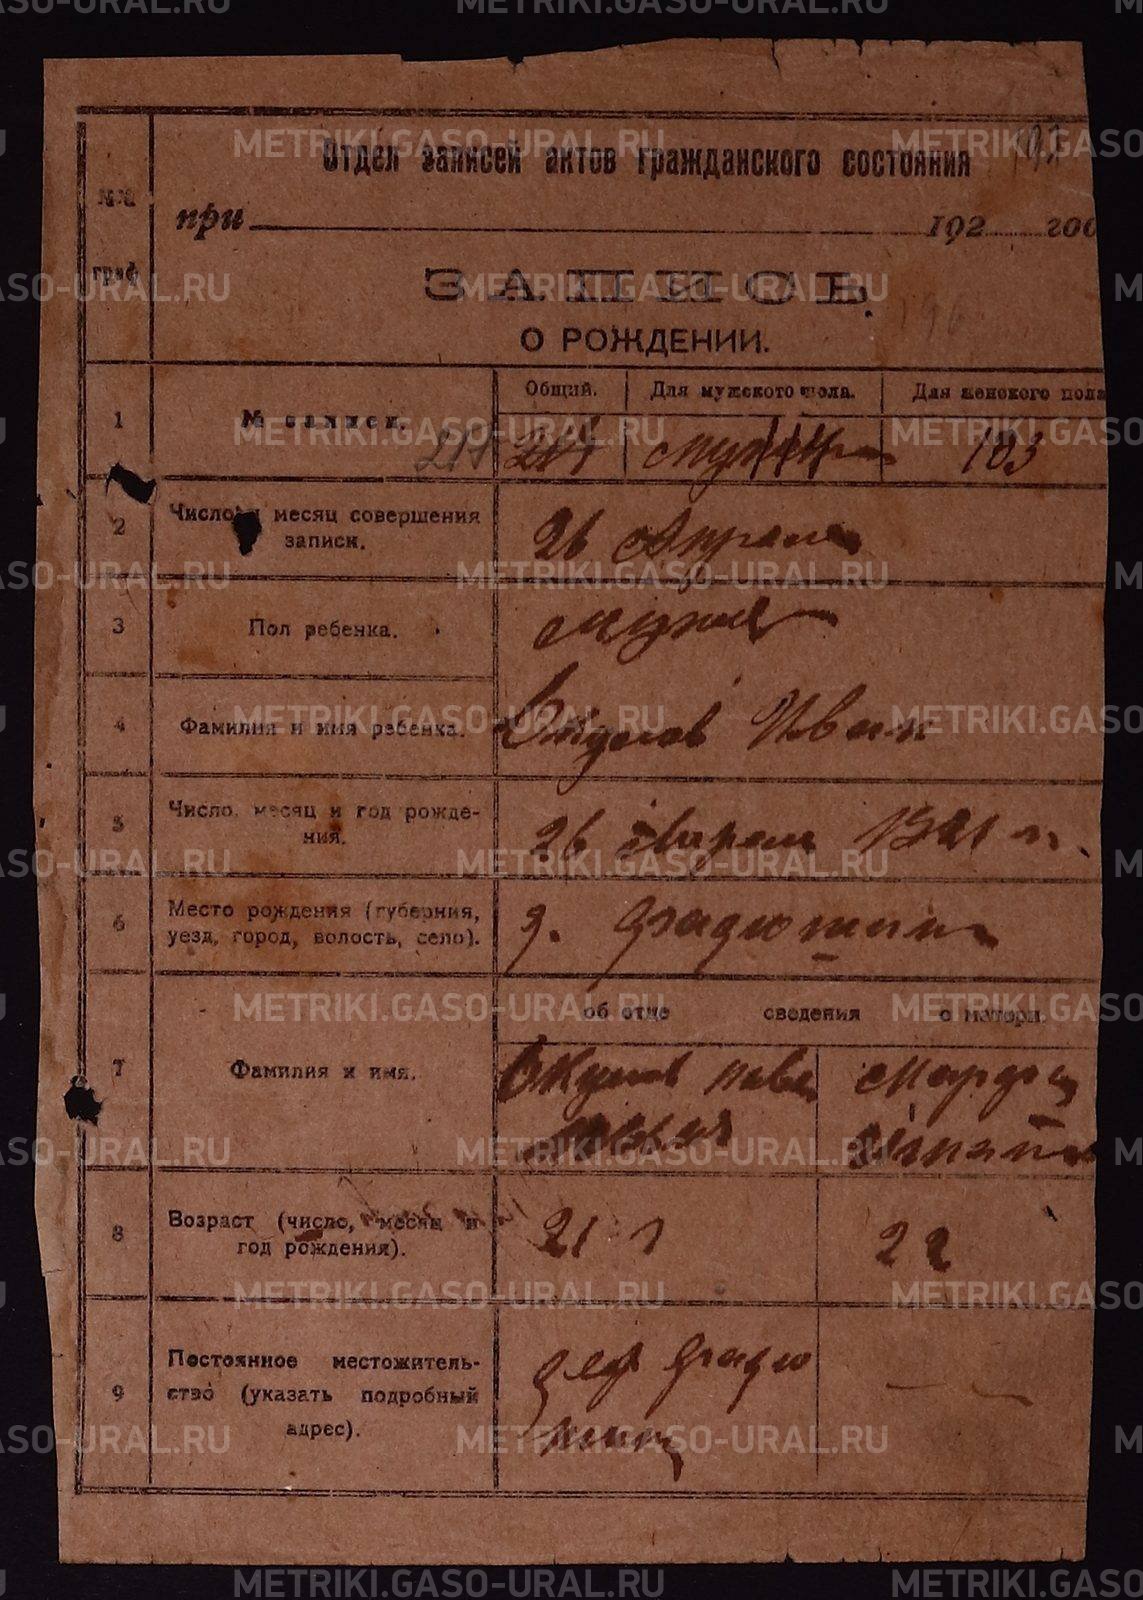 Отдел записей актов гражданского состояния
№№ граф
при 192 год
ЗАПИСЬ
О РОЖДЕНИИ.
Общий. Для мужского пола. Для женского пола
1 № записи. 217 103
2 Число и месяц совершения записи. 26 Апреля
3 Пол ребенка. мужск
4 Фамилия и имя ребенка. Окулов Иван
5 Число, месяц и год рожде-
ния. 26 апреля 1921 г.
6 Место рождения (губерния,
уезд, город, волость, село). д. Фадюшина
об отце сведения о матери.
7 Фамилия и имя. Окулов Павел Марфа
8 Возраст (число, месяц и
год рождения). 21 г 22
9 Постоянное местожитель-
ство (указать подробный
адрес). дер Фадю
шина
METRIKI.GASO-URAL.RU